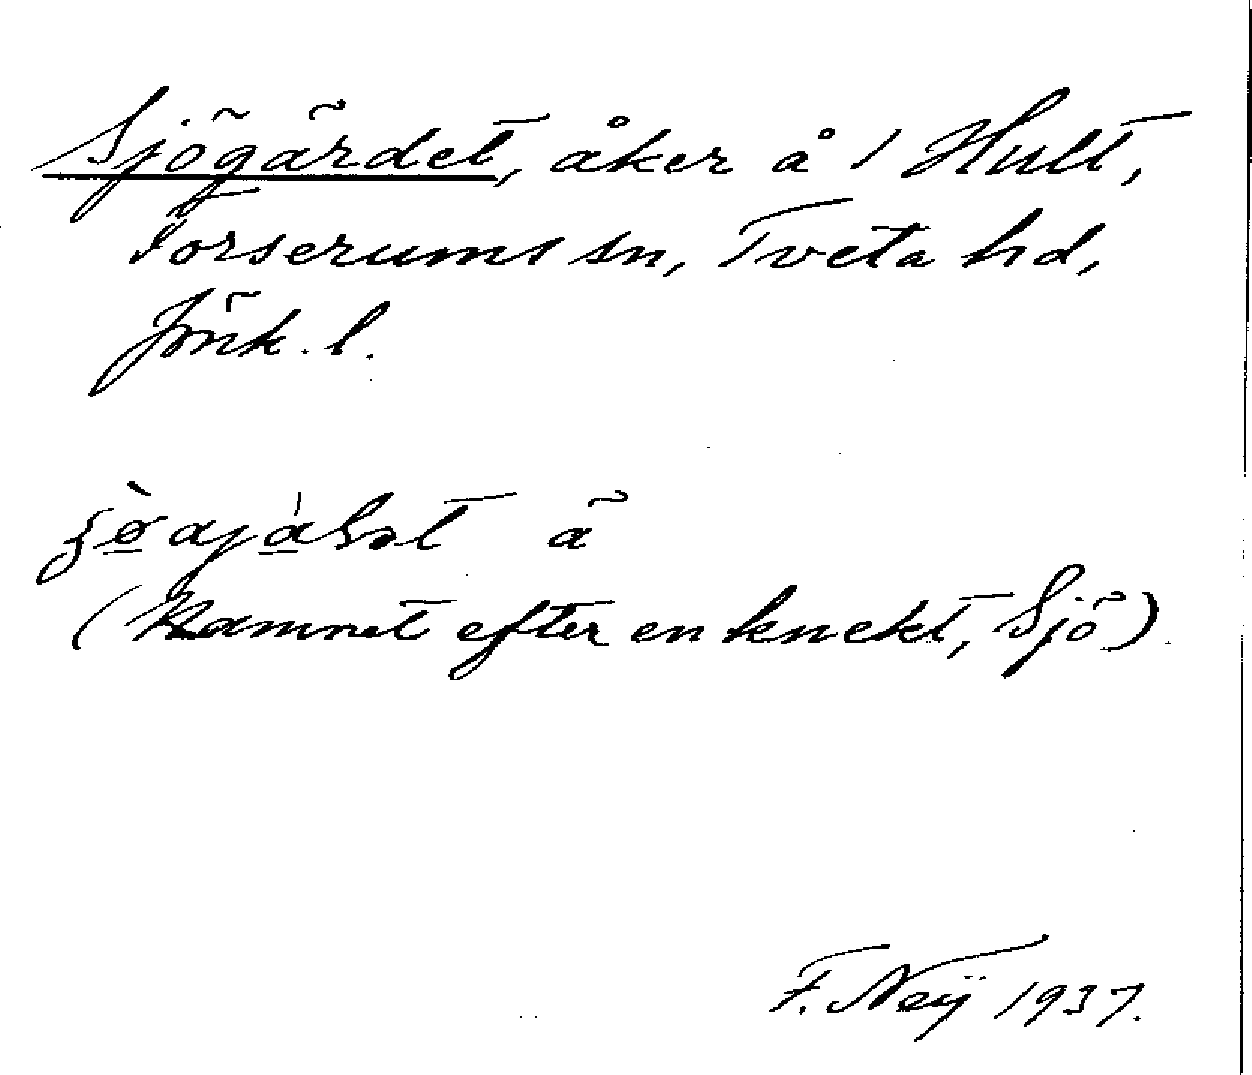 Sjögärdet, åker å 1 Hult,
Forserums sn, Tveta hd,
Jönk. l.
ä
(Namnet efter en knekt, Sjö)
F. Neij 1937.